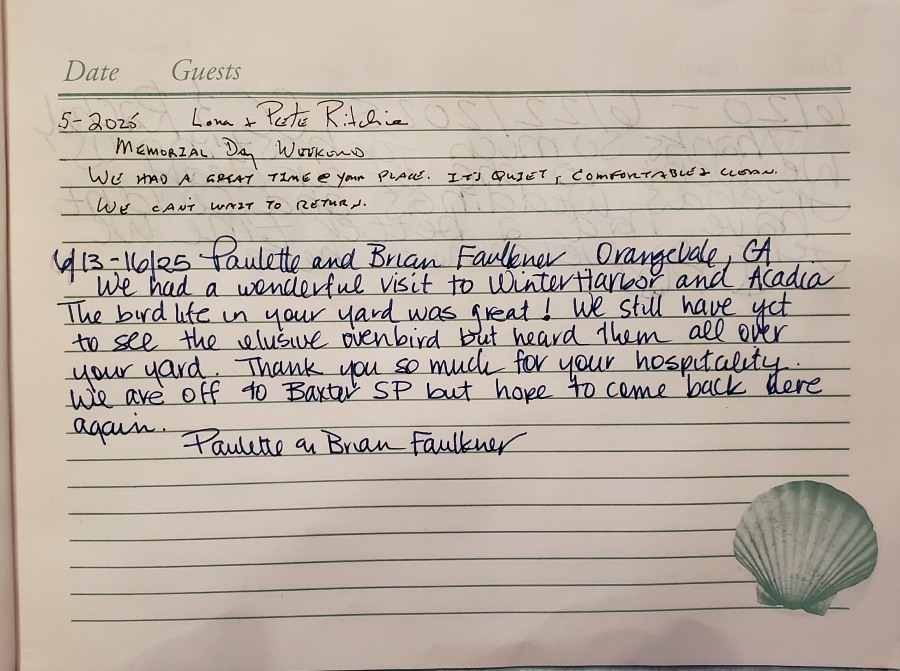 Date Guests
5-2025 Lona + Pete Ritchie
Memorial Day Weekend
We had a great time @ your place. It's quiet, comfortable & clean.
We can't wait to return.
6/13-16/25 Paulette and Brian Faulkner Orangevale, CA
We had a wonderful visit to Winter Harbor and Acadia
The bird life in your yard was great! We still have yet
to see the elusive ovenbird but heard them all over
your yard. Thank you so much for your hospitality.
We are off to Baxter SP but hope to come back here
again.
Paulette an Brian Faulkner